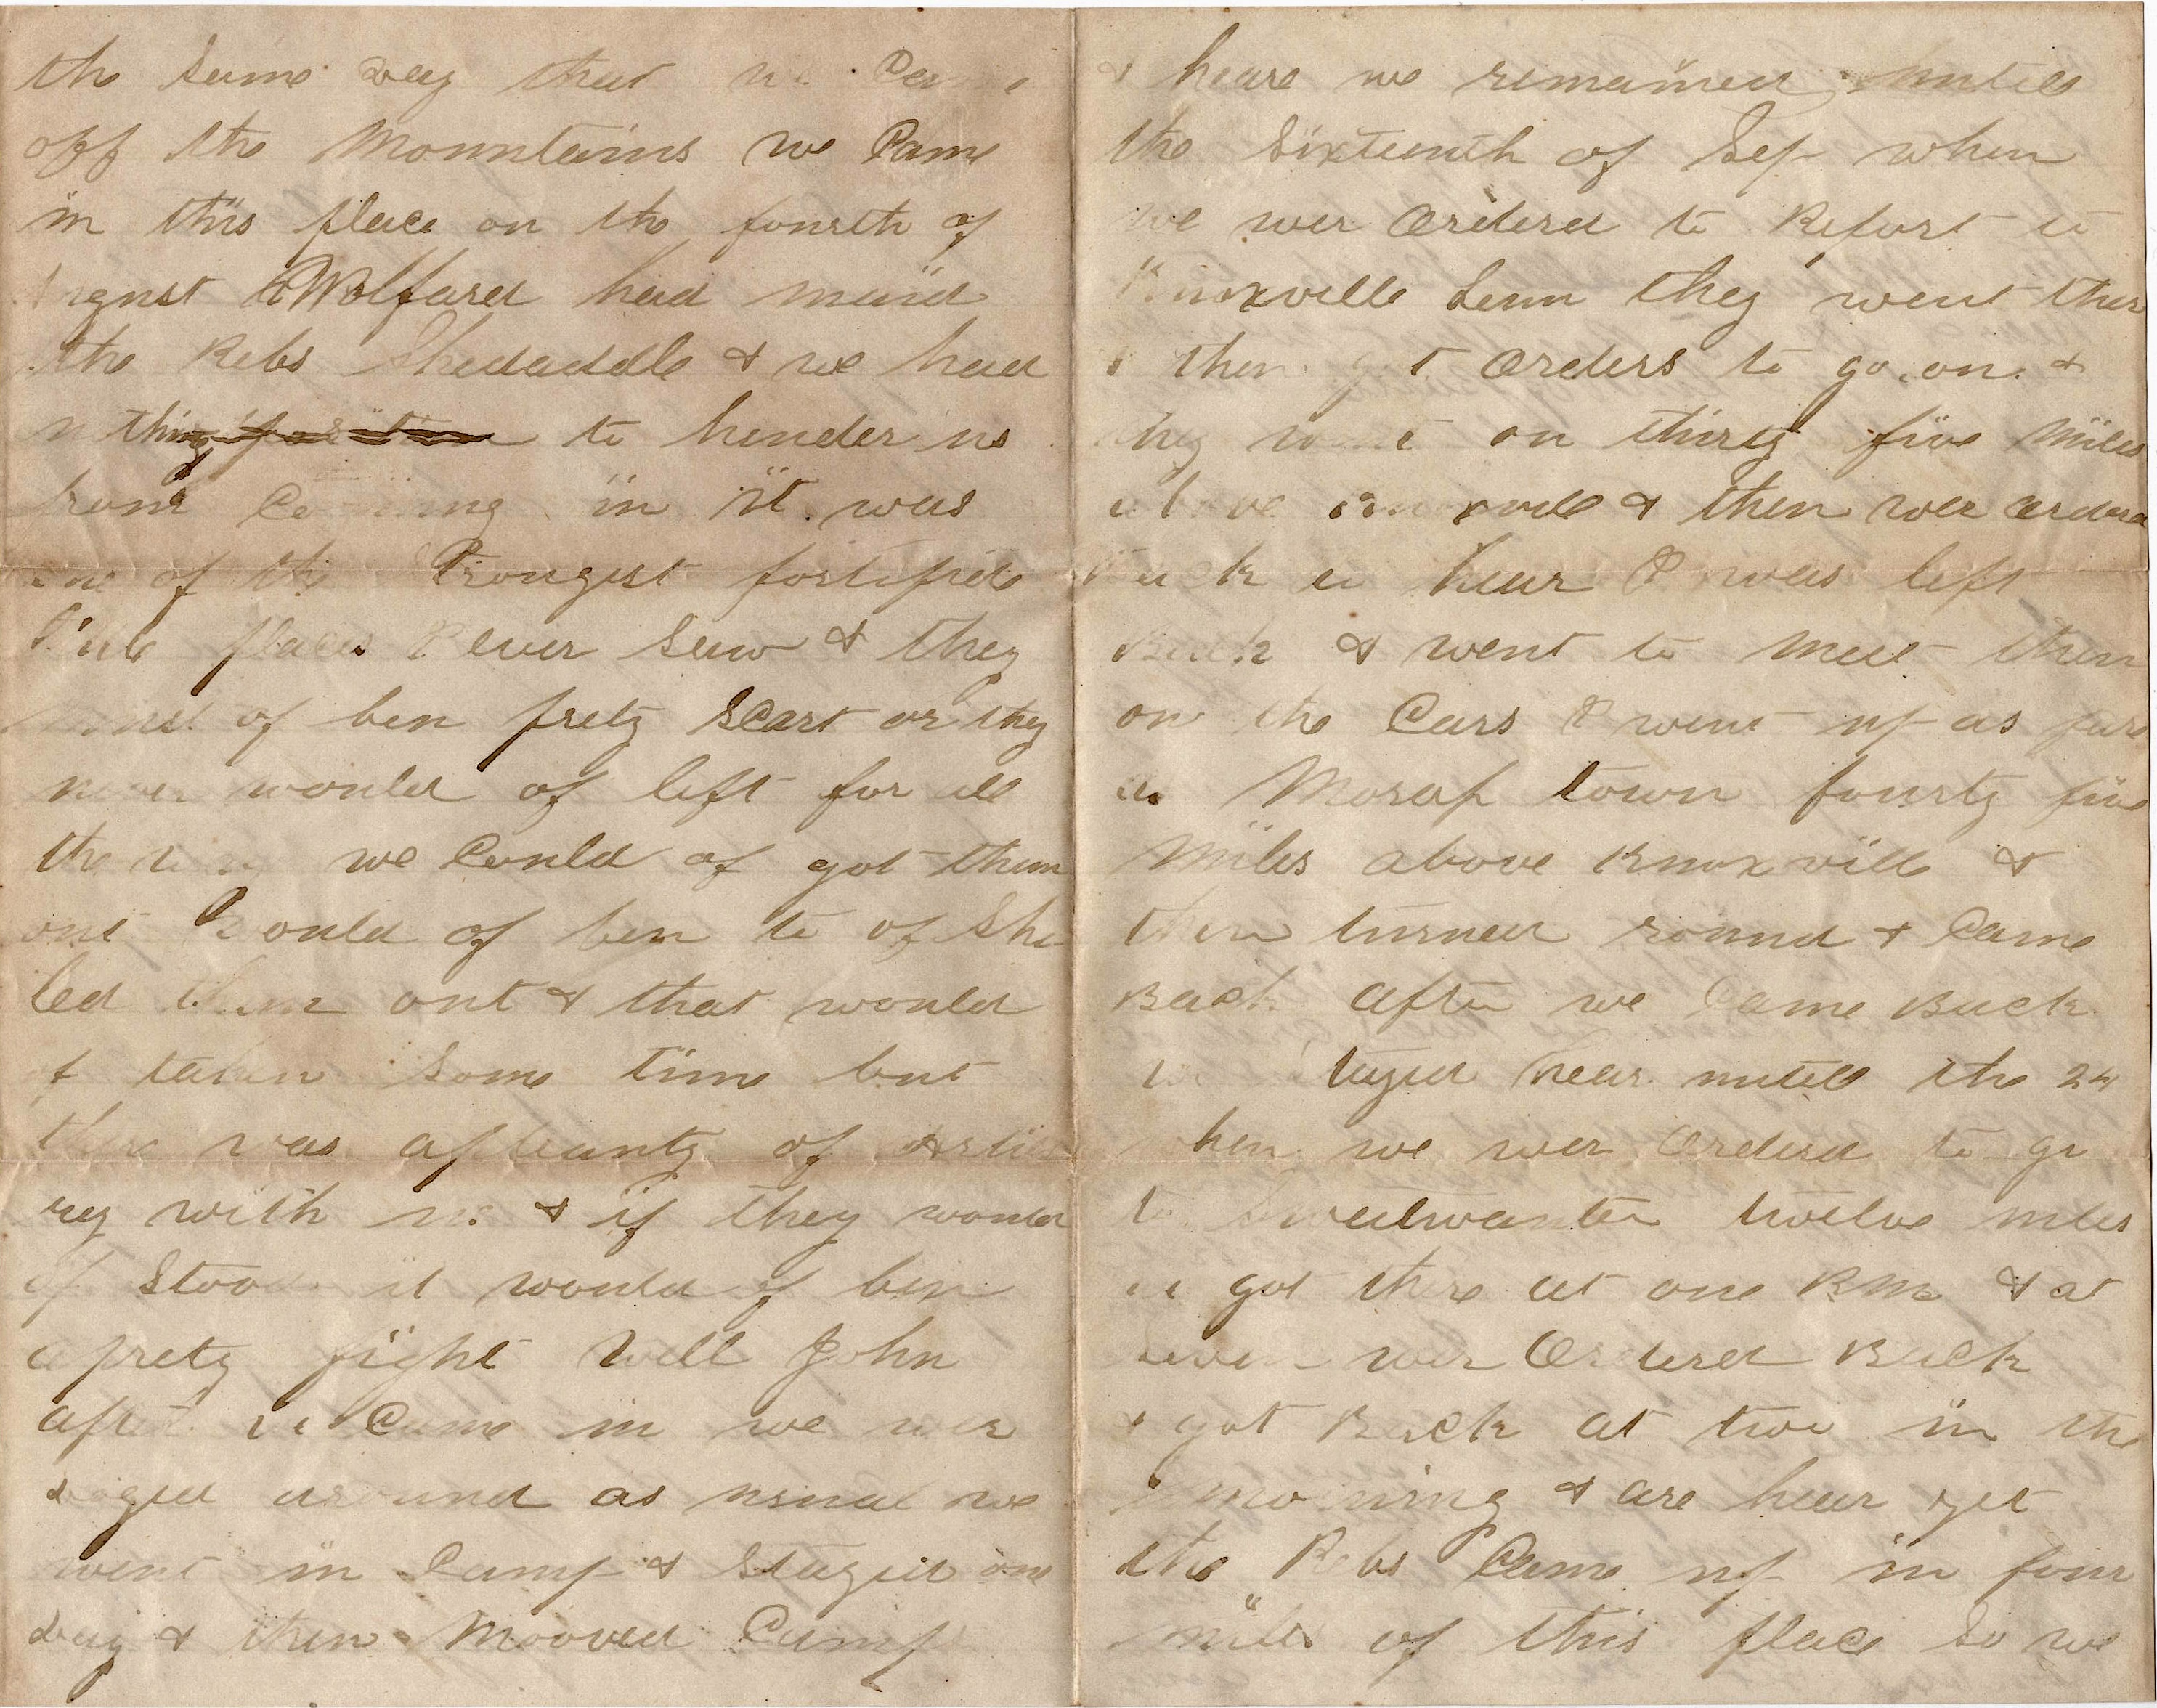 the Same way that we Came
off the Mountains we Came
in this place on the fourth of
August Wolfard had maid
the Rebs Skedaddle & we had
nothing to hender us
from Coming in it was
one of the Strongest fortifide
places I ever Saw & they
must of ben prety Scart or they
never would of left for all
the way we Could of got them
out would of ben to of She
led them out & that would
of taken Some time but
there was apleanty of Artile
rey with us & if they would
of Stood it would of ben
a prety fight well John
after we Came in we wer
doged around as usual we
went in Camp & Stayed one
day & then Mooved Camp
& heare we remained untill
the Sixteenth of Sep when
we wer Ordered to Report to
Knoxville Tenn they went thare
& then got Orders to go on &
they went on thirty five Miles
above Knoxvill & then wer ordered
Back to hear I was left
Back & went to Meet them
on the Cars I went up as fare
as Morsap town fourty five
Miles above Knoxvill &
then turned round & Came
Back after we Came Back
we Stayed hear untill the 24
when we wer Ordered to go
to Sweetwauter twelve miles
we got there at one P.M. & at
Seven wer Ordered Back
& got Back at two in the
morning & are hear yet
the Rebs Came up in four
miles of this place So we